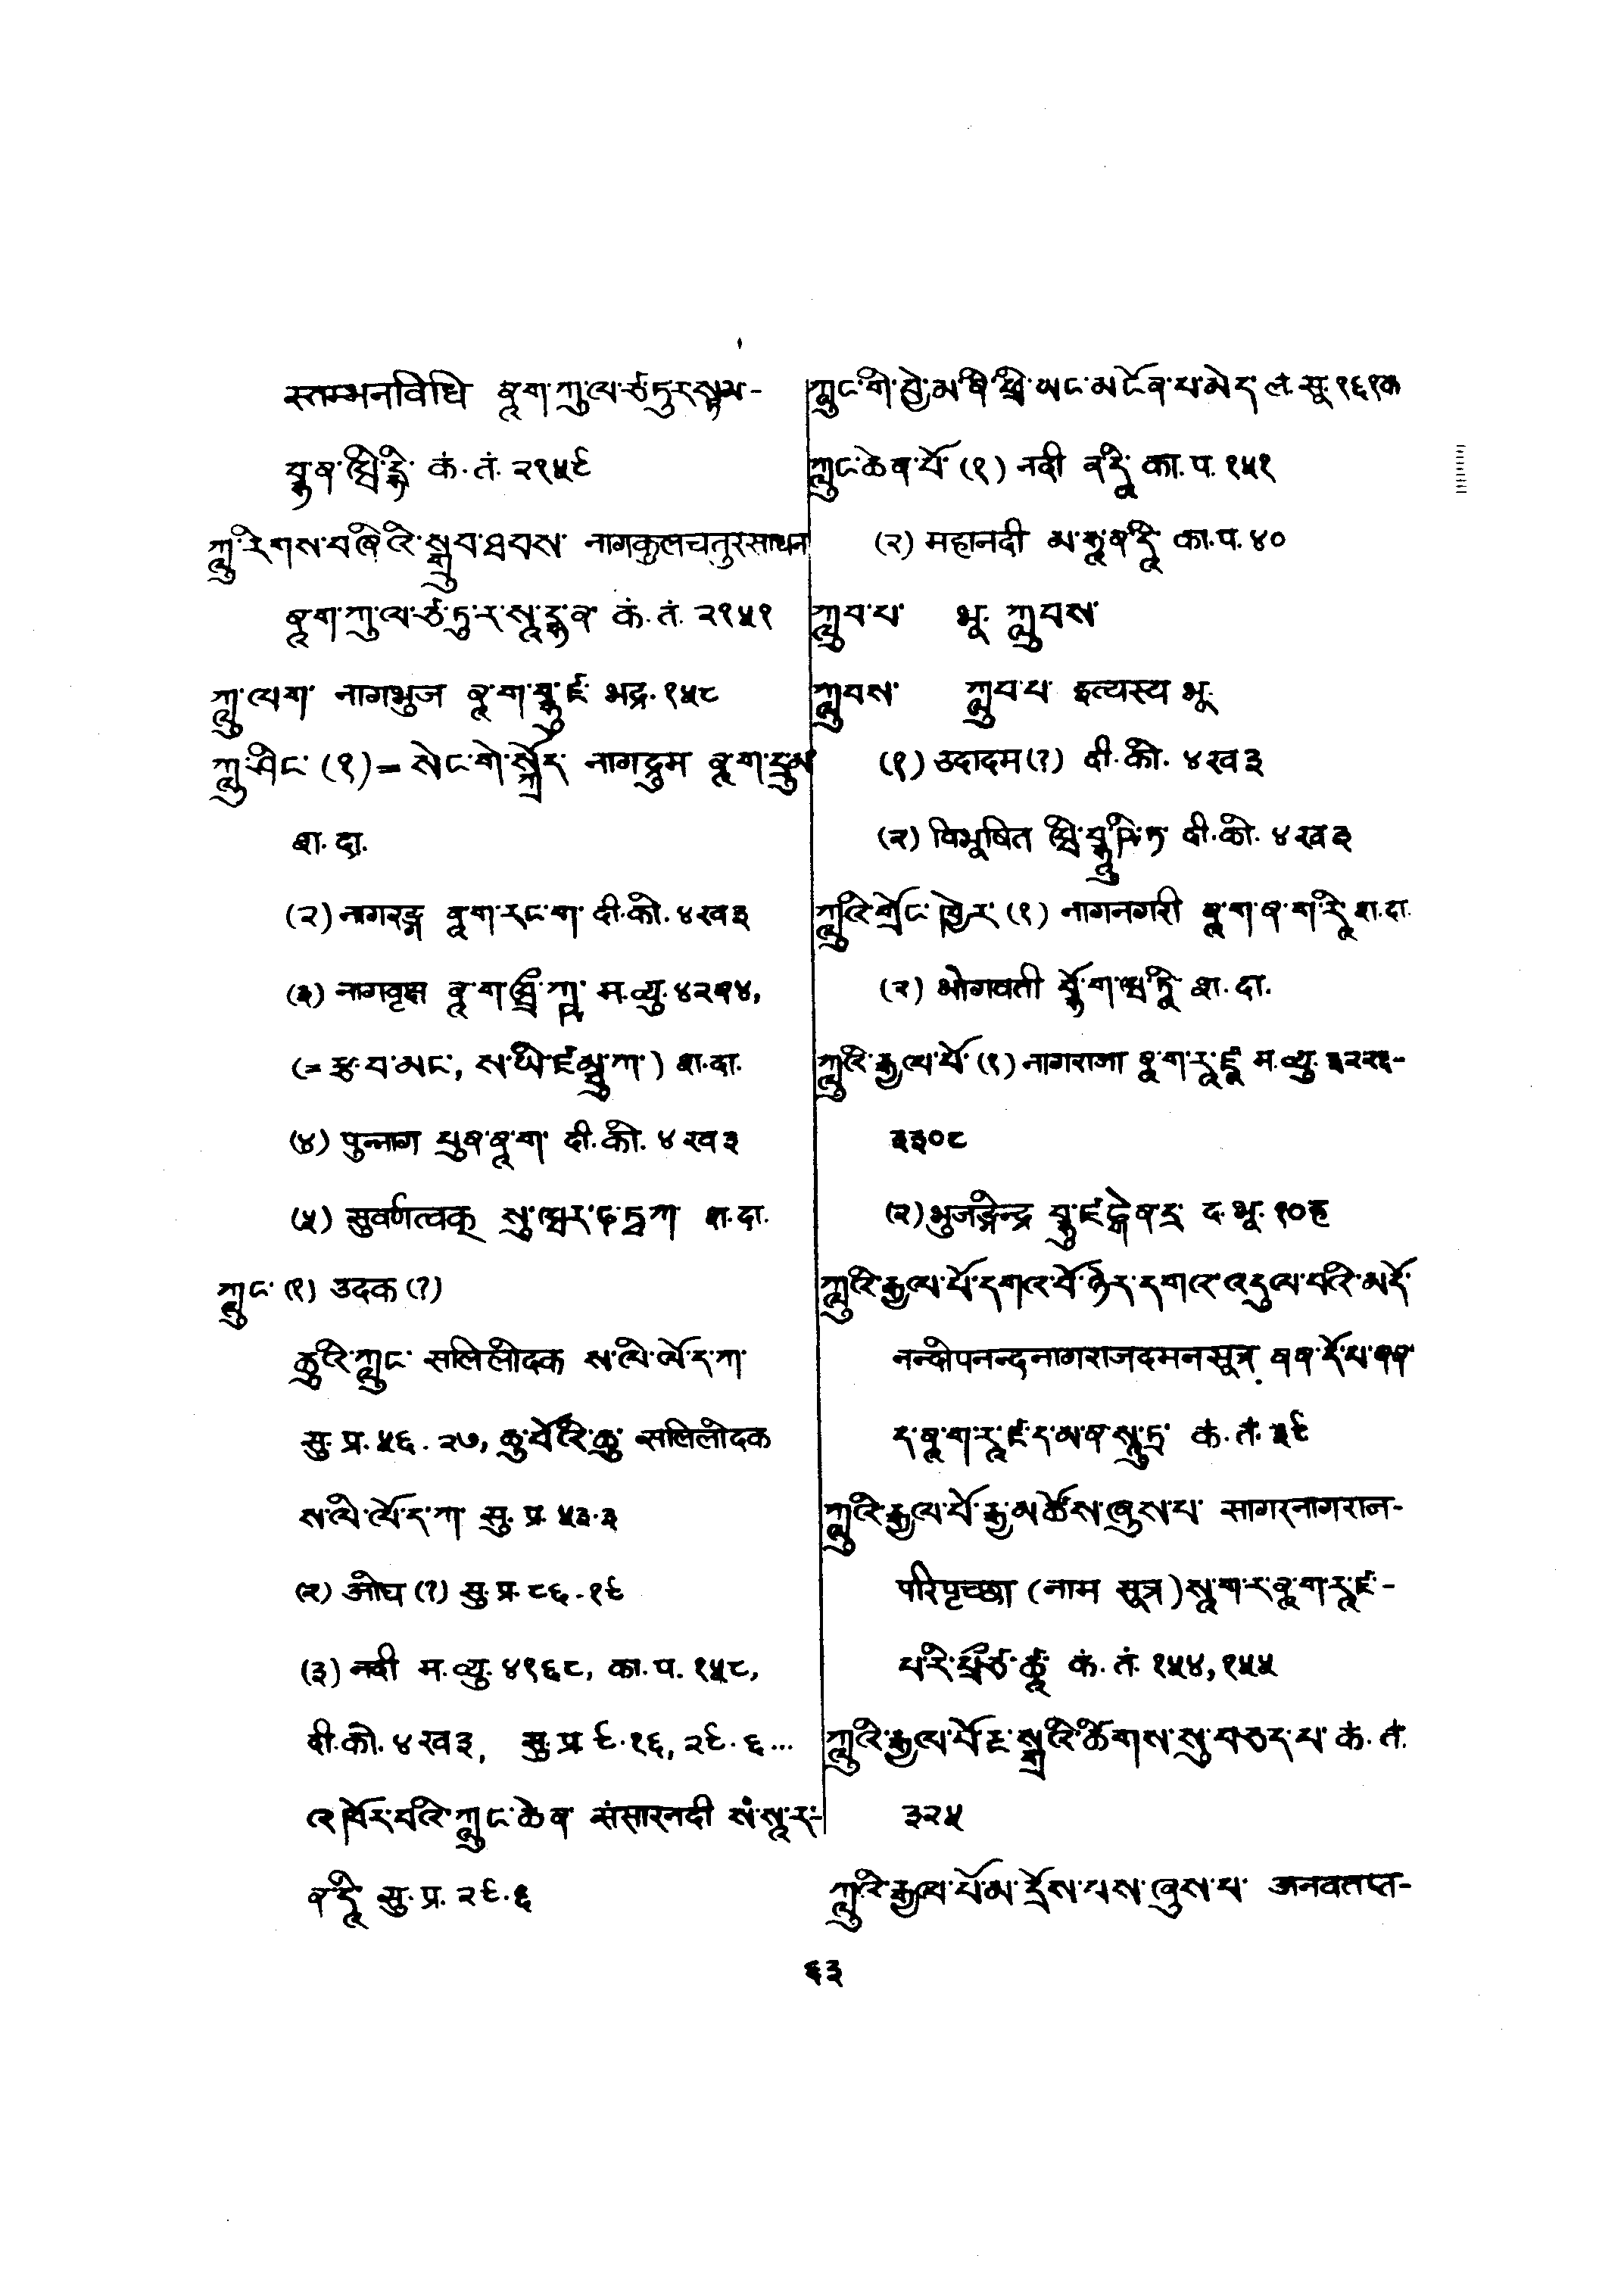 स्तम्भनविधि ནཱ་ག་ཀུ་ལ་ཙ་ཏུ་ར་སྟམ-
བྷ་ན་ཝི་དྷི་ कं. तं. २१५९
ཀླུ་རིགས་བཞིའི་སྒྲུབ་ཐབས་ नागकुलचतुरसाधन
ནཱ་ག་ཀུ་ལ་ཙ་ཏུ་ར་སཱ་དྷ་ན་ कं. तं. २१५१
ཀླུ་ལག་ नागभुज ནཱ་ག་བྷུ་ཛ་ भद्र. १५८
ཀླུ་ཤིང་ (१) = སེང་གེ་སྐྲོད་ नागद्रुम ནཱ་ག་དྲུམ
शा. दा.
(२) नागरङ्ग ནཱ་ག་རང་ག་ दी. को. ४ख३
(३) नागवृक्ष ནཱ་ག་ཝྲྀ་ཀྵ་ म. व्यु. ४२१४,
(= རྩ་བ་མང་, ས་ཡི་ཛམྦུ་ཀ་) शा. दा.
(४) पुन्नाग པུན་ནཱ་ག་ दी. को. ४ख३
(५) सुवर्णत्वक् སུ་ཝར་ཎ་ཏྭ་ཀ་ शा. दा.
ཀླུང་ (१) उदक (?)
ཆུའི་ཀླུང་ सलिलोदक ས་ལི་ལོ་ད་ཀ་
सु. प्र. ५६. २७, ཆུ་བོའི་ཆུ་ सलिलोदक
ས་ལི་ལོ་ད་ཀ་ सु. प्र. ५३. ३
(२) ओघ (?) सु. प्र. ८६. १९
(३) नदी म. व्यु. ४१६८, का. प. १५८,
दी. को. ४ख३, सु. प्र. ९. १६, २९. ६...
འཁོར་བའི་ཀླུང་ཆེན་ संसारनदी སཾ་སཱ་ར་-
ན་དཱི་ सु. प्र. २९. ६
ཀླུང་གི་བྱེ་མ་ནི་ཕྲི་ཡང་མངོན་པ་མེད་ लं. सू. १६१क
ཀླུང་ཆེན་པོ་ (१) नदी ན་དཱི་ का. प. १५१
(२) महानदी མ་ཧཱ་ན་དཱི་ का. प. ४०
ཀླུབ་པ་ भू. ཀླུབས་
ཀླུབས་ ཀླུབ་པ་ इत्यस्य भू.
(१) उदादम (?) दी. को. ४ख३
(२) विभूषित ཝི་བྷཱུ་ཥི་ཏ་ दी. को. ४ख३
ཀླུའི་གྲོང་ཁྱེར་ (१) नागनगरी ནཱ་ག་ན་ག་རཱི་ शा. दा.
(२) भोगवती བྷོ་ག་ཝ་ཏཱི་ शा. दा.
ཀླུའི་རྒྱལ་པོ་ (१) नागराजा ནཱ་ག་རཱ་ཛཱ་ म. व्यु. ३२२६-
३३०८
(२) भुजङ्गेन्द्र བྷུ་ཛ་ངྒེན་དྲ་ द. भू. १०ह
ཀླུའི་རྒྱལ་པོ་དགའ་བོ་ཉེར་དགའ་འདུལ་བའི་མདོ་
नन्दोपनन्दनागराजदमनसूत्र ནན་དོ་པ་ནན་
ད་ནཱ་ག་རཱ་ཛ་ད་མ་ན་སཱུ་ཏྲ་ कं. तं. ३९
ཀླུའི་རྒྱལ་པོ་རྒྱ་མཚོས་ཞུས་པ་ सागरनागराज-
परिपृच्छा (नाम सूत्र) སཱ་ག་ར་ནཱ་ག་རཱ་ཛ་-
པ་རི་པྲྀཙ་ཚཱ་ कं. तं. १५४, १५५
ཀླུའི་རྒྱལ་པོ་རྔ་སྒྲའི་ཚིགས་སུ་བཅད་པ་ कं. तं.
३२५
ཀླུའི་རྒྱལ་པོ་མ་དྲོས་པས་ཞུས་པ་ अनवतप्त-
६३